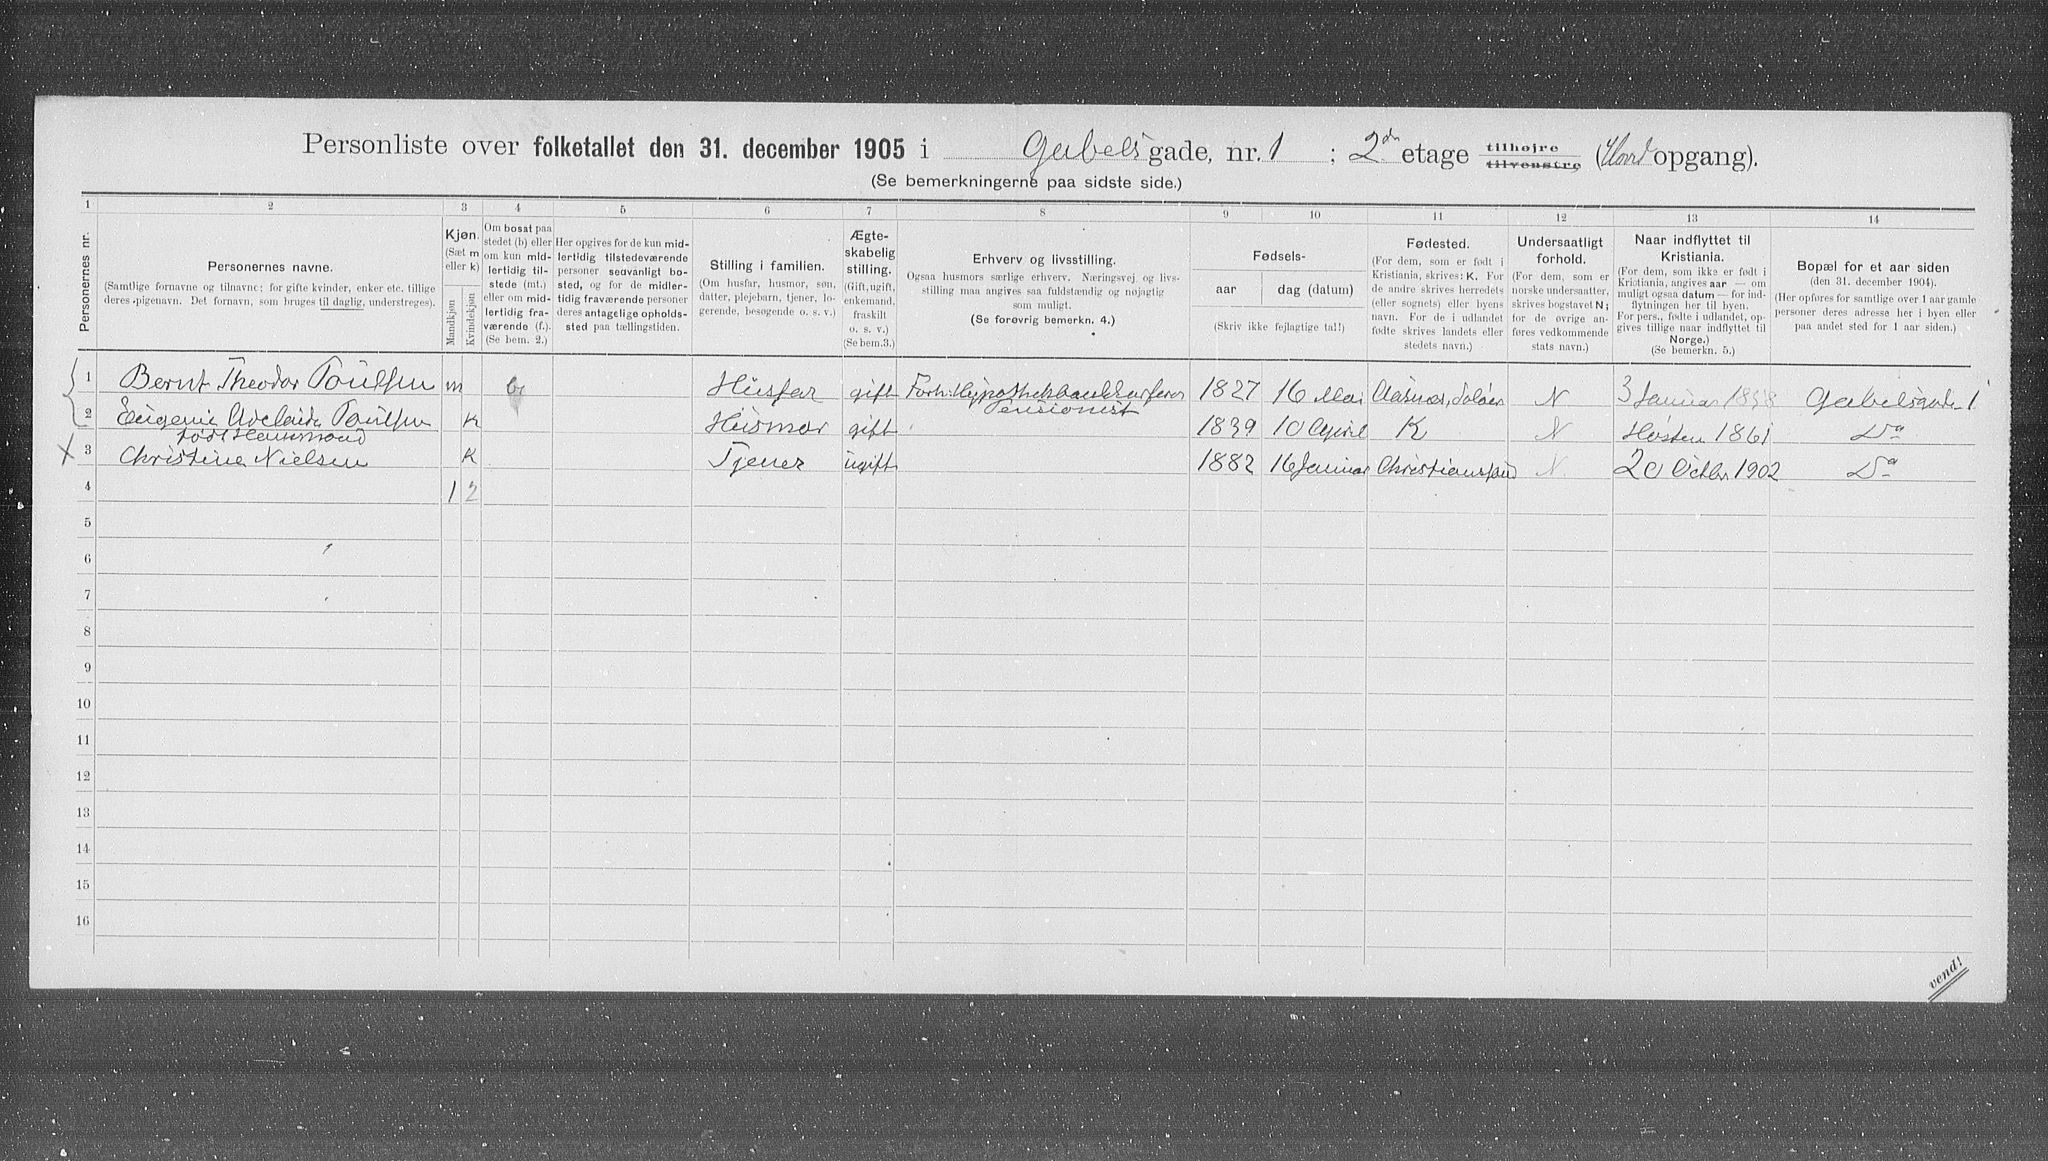 Personliste over folketallet den 31. december 1905 i Gabels gade, nr. 1 ; 2den etage tilhøjre tilvenstre ( opgang).
(Se bemerkningerne paa sidste side.)
1 2 3 4 5 6 7 8 9 10 11 12 13 14
Personernes nr.
Personernes navne.
(Samtlige fornavne og tilnavne; for gifte kvinder, enker etc. tillige deres pigenavn. Det fornavn, som bruges til daglig, understreges).
Kjøn.
(Sæt m eller k)
Mandkjøn
Kvindekjøn
Om bosat paa stedet (b) eller om kun midlertidig tilstede (mt.) eller om midlertidig fraværende (f.). (Se bem. 2.)
Her opgives for de kun midlertidig tilstedeværende personer sedvanligt bosted, og for de midlertidig fraværende personer deres antagelige opholdssted paa tællingstiden.
Stilling i familien.
(Om husfar, husmor, søn, datter, plejebarn, tjener, logerende, besøgende o. s. v.)
Ægteskabelig stilling.
(Gift, ugift, enkemand, fraskilt o. s. v.)
(Se bem.3.)
Erhverv og livsstilling.
Ogsaa husmors særlige erhverv. Næringsvej og livsstilling maa angives saa fuldstændig og nøjagtig som muligt.
(Se forøvrig bemerkn. 4.)
Fødsels-
aar
dag (datum)
(Skriv ikke fejlagtige tal!)
Fødested.
(For dem, som er født i Kristiania, skrives: K. For de andre skrives herredets (eller sognets) eller byens navn. For de i udlandet fødte skrives landets eller stedets navn.)
Undersaatligt forhold.
(For dem, som er norske undersaatter, skrives bogstavet N; for de øvrige anføres vedkommende stats navn.)
Naar indflyttet til Kristiania.
(For dem, som ikke er født i Kristiania, angives aar — om muligt ogsaa datum — for indflytningen her til byen. For pers., fødte i udlandet, opgives tillige naar indflyttet til Norge.)
(Se bemerkn. 5.)
Bopæl for et aar siden
(den 31. december 1904).
(Her opføres for samtlige over 1 aar gamle personer deres adresse her i byen eller paa andet sted for 1 aar siden.)
1 Bernt Theodor Poulsen m b Husfar gift Forh. Hypothekbankkasserer 1827 16 Mai Aasnæs, Soløer N 3 Januar 1858 Gabelsgade 1
Pensionist
2 Eugenie Adelaide Poulsen K Husmor gift 1839 10 April K N Høsten 1861 Do
født Hammond
3 Christine Nielsen K Tjener ugift 1882 16 Januar Christianssund N. 20 Octbr 1902 Do
4 1 2
5
6
7
8
9
10
11
12
13
14
15
16
vend!